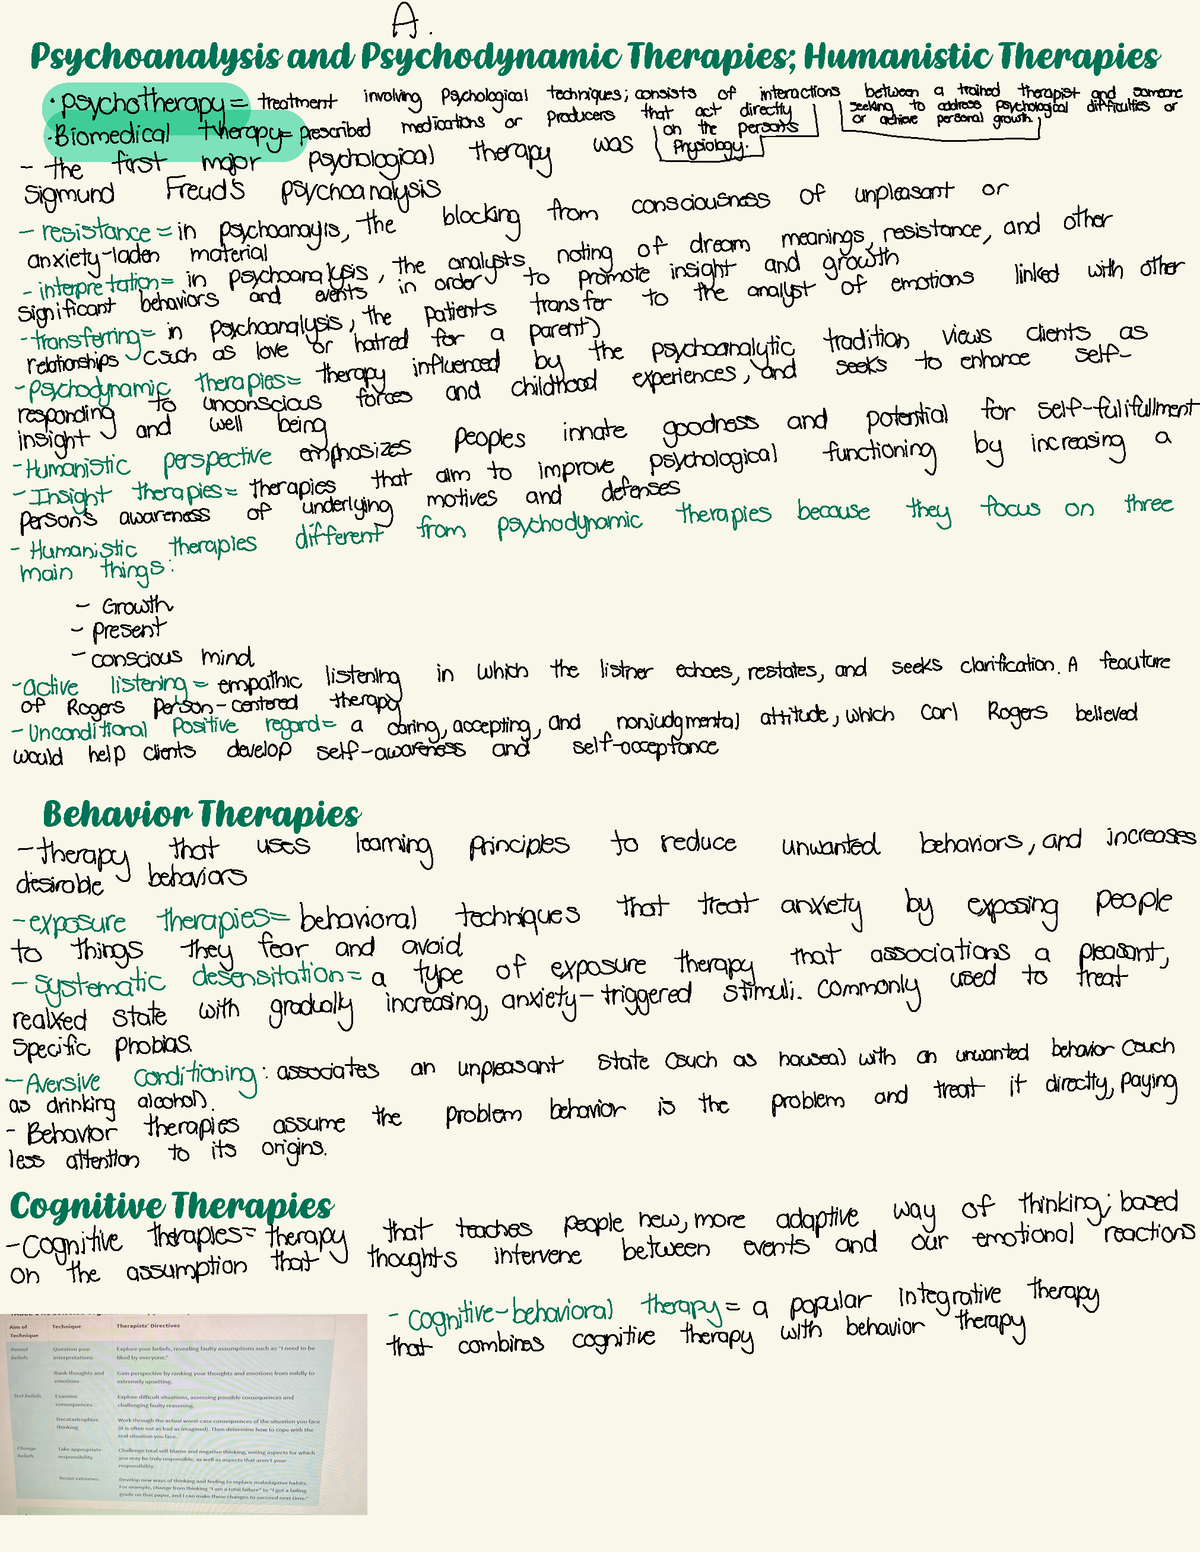 A.
Psychoanalysis and Psychodynamic Therapies; Humanistic Therapies
· psychotherapy = treatment involving Psychological techniques; consists of interactions between a trained therapist and someone
seeking to address psychological difficulties or
or achieve personal growth.
· Biomedical therapy = prescribed medications or producers that act directly
on the person's
Physiology.
- the first major psychological therapy was
Sigmund Freud's psychoanalysis
- resistance = in psychoanayis, the blocking from consciousness of unpleasant or
anxiety-laden material
- interpretation = in psychoanalysis, the analysts, noting of dream meanings, resistance, and other
significant behaviors and events in order to promote insight and growth
- transferring = in psychoanalysis, the patients transfer to the analyst of emotions linked with other
relationships (such as love or hatred for a parent)
- Psychodynamic therapies = therapy influenced by the psychoanalytic tradition views clients as
responding to unconscious forces and childhood experiences, and seeks to enhance self-
insight and well being
- Humanistic perspective emphasizes peoples innate goodness and potential for self-fulifullment
- Insight therapies = therapies that aim to improve psychological functioning by increasing a
person's awareness of underlying motives and defenses
- Humanistic therapies different from psychodynamic therapies because they focus on three
main things:
- Growth
- present
- conscious mind
- active listening = empathic listening in which the listner echoes, restates, and seeks clarification. A feauture
of Rogers person-centered therapy
- Unconditional Positive regard = a caring, accepting, and nonjudgmental attitude, which Carl Rogers believed
would help clients develop self-awareness and self-acceptance
Behavior Therapies
- therapy that uses learning principles to reduce unwanted behaviors, and increases
desirable behaviors
- exposure therapies = behavioral techniques that treat anxiety by exposing people
to things they fear and avoid
- Systematic desensitation = a type of exposure therapy that associations a pleasant,
realxed state with gradually increasing, anxiety-triggered stimuli. commonly used to treat
specific phobias.
- Aversive conditioning: associates an unpleasant state (such as nausea) with an unwanted behavior (such
as drinking alcohol).
- Behavior therapies assume the problem behavior is the problem and treat it directly, paying
less attention to its origins.
Cognitive Therapies
- Cognitive therapies = therapy that teaches people new, more adaptive way of thinking; based
on the assumption that thoughts intervene between events and our emotional reactions
- cognitive-behavioral therapy = a popular integrative therapy
that combines cognitive therapy with behavior therapy
Aim of Technique Technique Therapists' Directives
Reveal beliefs Question your interpretations Explore your beliefs, revealing faulty assumptions such as "I need to be
liked by everyone."
Rank thoughts and emotions Gain perspective by ranking your thoughts and emotions from mildly to
extremely upsetting.
Test beliefs Examine consequences Explore difficult situations, assessing possible consequences and
challenging faulty reasoning.
Decatastrophize thinking Work through the actual worst-case consequences of the situation you face
(it is often not as bad as imagined). Then determine how to cope with the
real situation you face.
Change beliefs Take appropriate responsibility Challenge total self-blame and negative thinking, noting aspects for which
you may be truly responsible, as well as aspects that aren't your
responsibility.
Resist extremes Develop new ways of thinking and feeling to replace maladaptive habits.
For example, change from thinking "I am a total failure" to "I got a failing
grade on that paper, and I can make these changes to succeed next time."